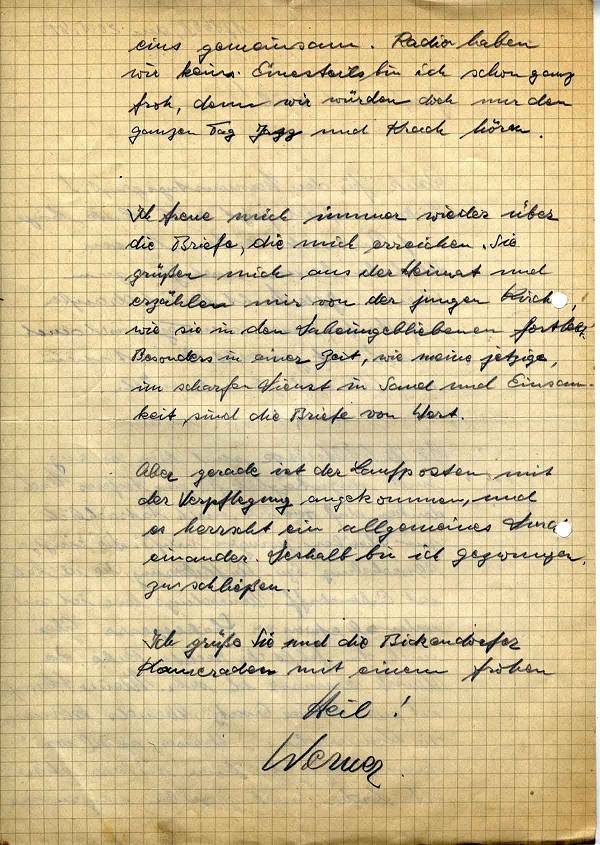 eins gemeinsam. Radio haben
wir keins. Einesteils bin ich schon ganz
froh, denn wir würden doch nur den
ganzen Tag Jazz und Krach hören.
Ich freue mich immer wieder über
die Briefe, die mich erreichen. Sie
grüßen mich aus der Heimat und
erzählen mir von der jungen Kirche
wie sie in den Daheimgebliebenen fortlebt.
Besonders in einer Zeit, wie meine jetzige,
im scharfen Dienst in Sand und Einsam-
keit, sind die Briefe von Wert.
Aber gerade ist der Laufposten mit
der Verpflegung angekommen, und
es herrscht ein allgemeines Durch
einander. Deshalb bin ich gezwungen,
zu schließen.
Ich grüße Sie und die Bickendorfer
Kameraden mit einem frohen
Heil!
Werner